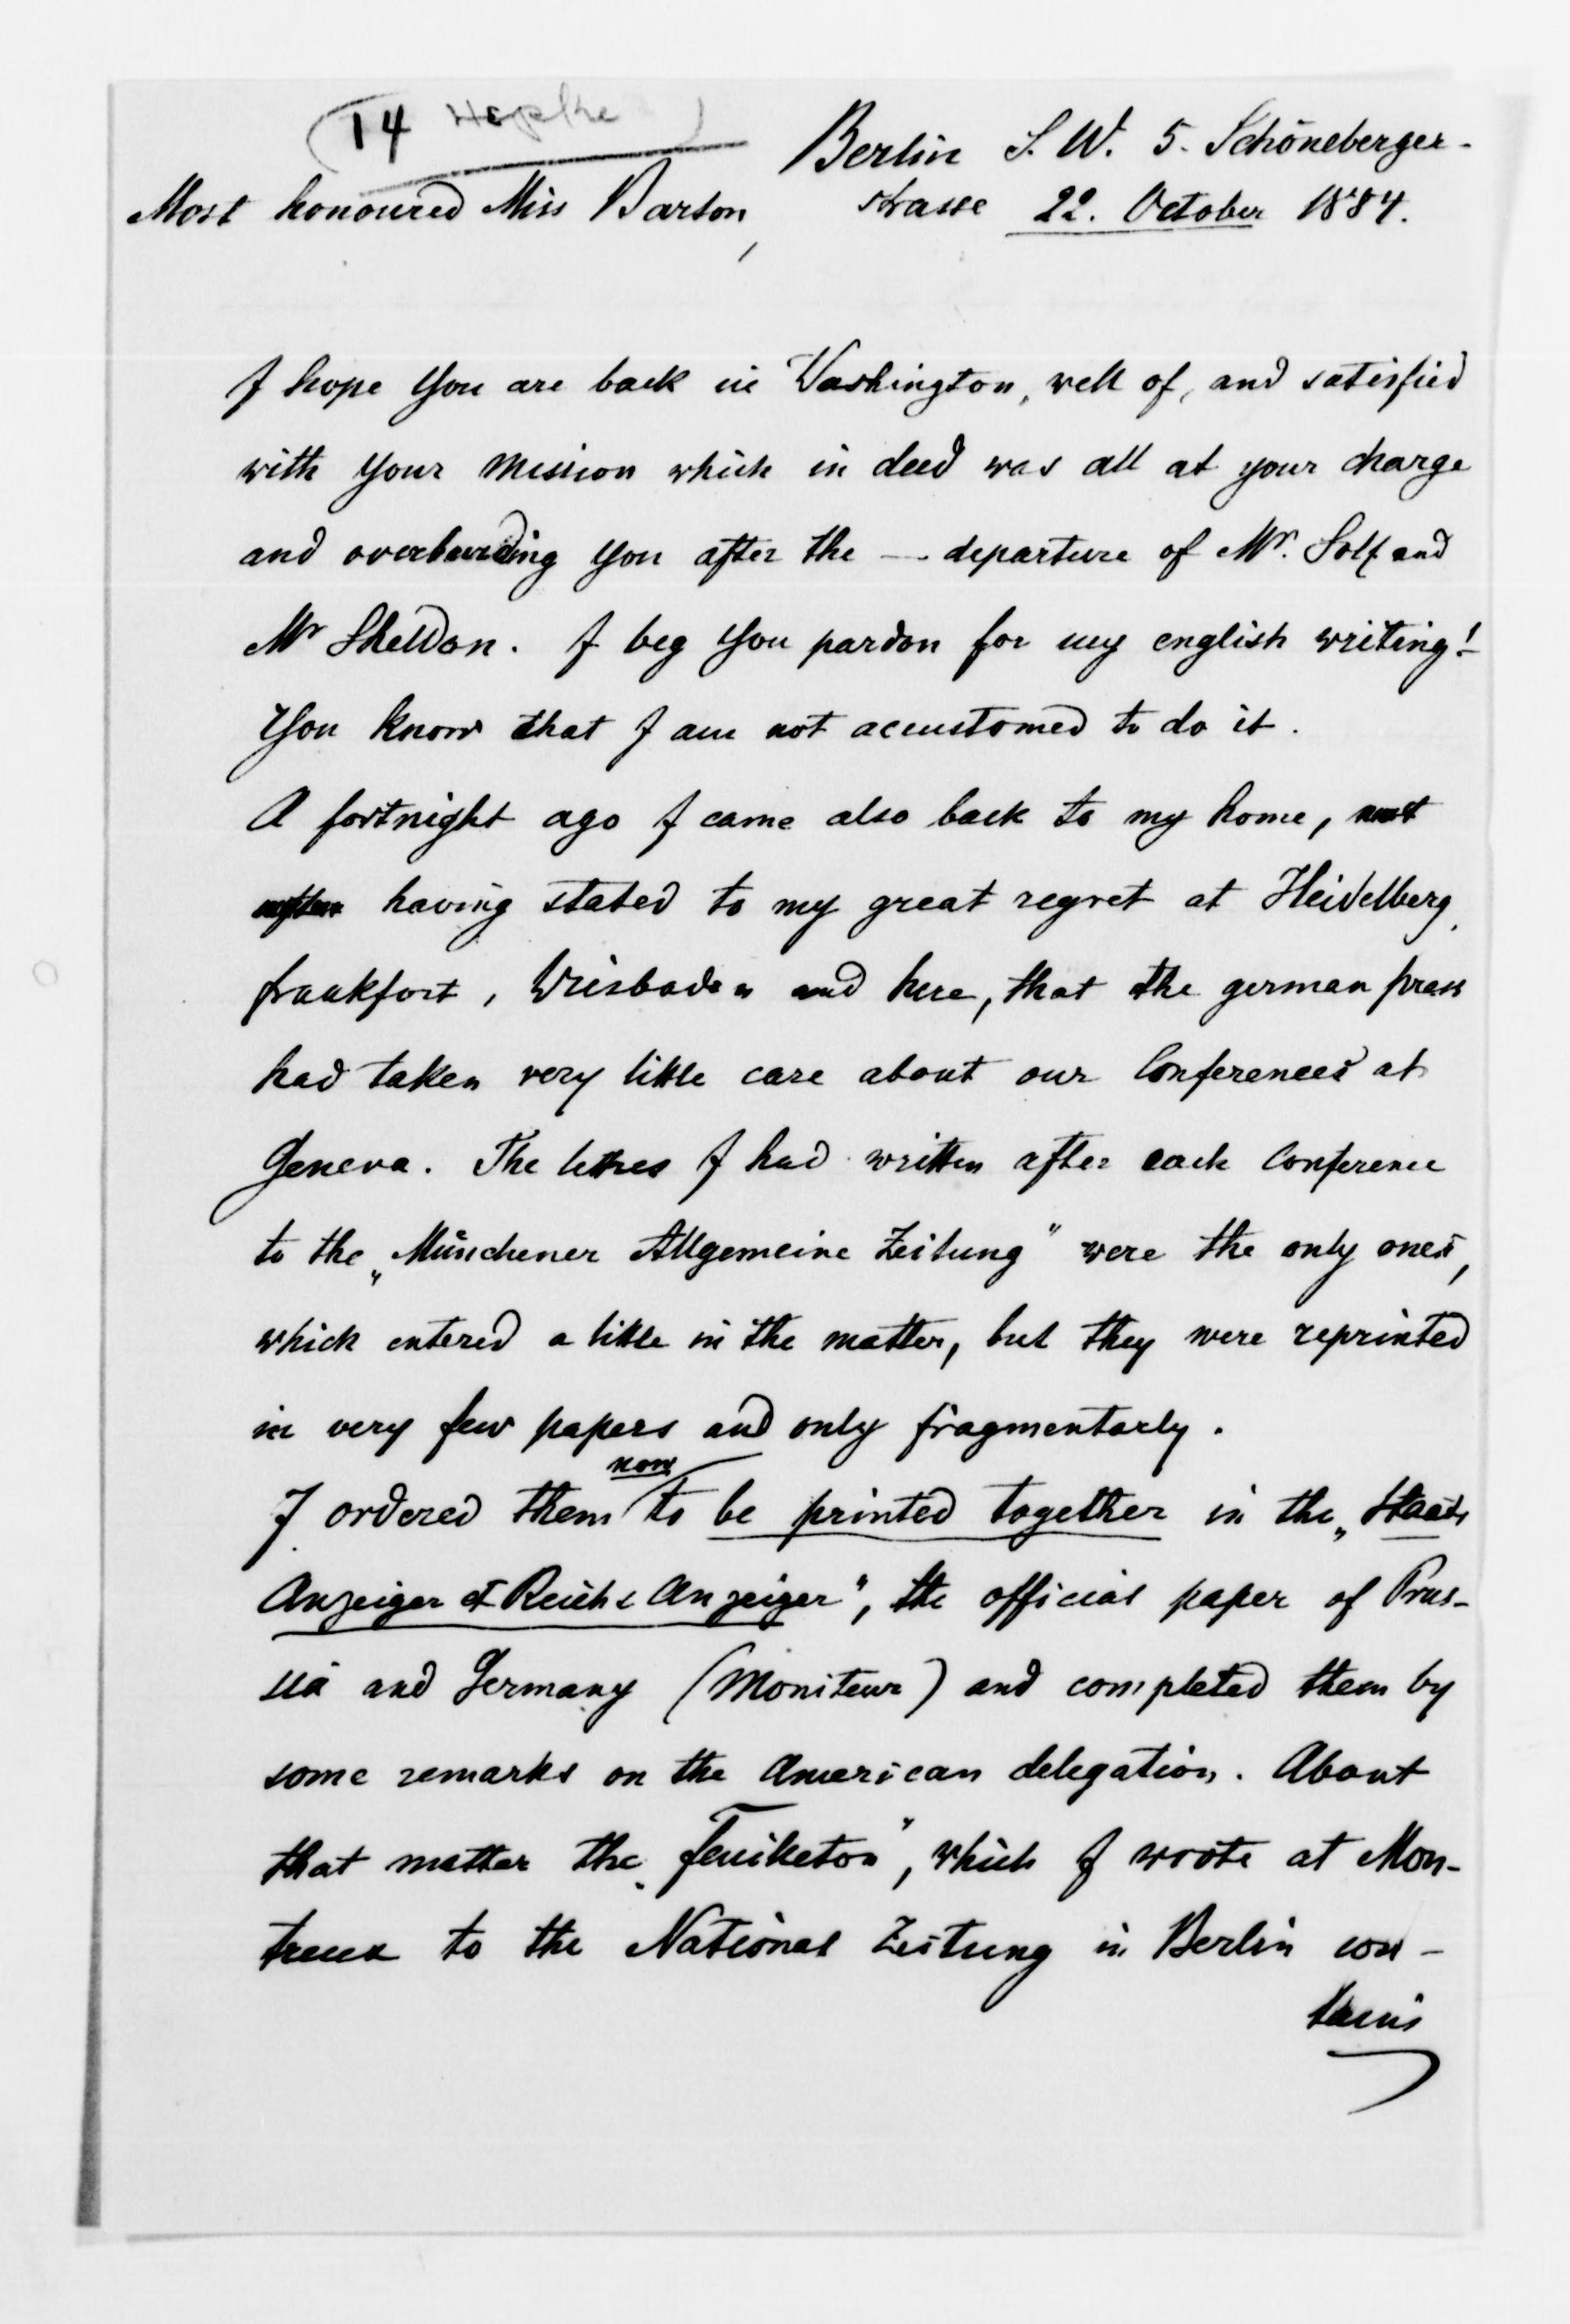 14 Hepke
Berlin S. W. 5. Schöneberger-
Most honoured Miss Barton, strasse 22. October 1884.
I hope You are back in Washington, well of, and satisfied
with Your mission which in deed was all at your charge
and overburding You after the —. departure of Mr. Solf and
Mr Sheldon. I beg You pardon for my english writing!
You know that I am not accustomed to do it.
A fortnight ago I came also back to my home,
having stated to my great regret at Heidelberg,
frankfort, Wiesbaden and here, that the german press
had taken very little care about our Conferences at
Geneva. The lettres I had written after each Conference
to the „Münchener Allgemeine Zeitung" were the only ones,
which entered a little in the matter, but they were reprinted
in very few papers and only fragmentarly.
now
I ordered them to be printed together in the „Staats
Anzeiger et Reichs Anzeiger", the official paper of Prus-
sia and Germany (Moniteur) and completed them by
some remarks on the American delegation. About
that matter the „feuilleton", which I wrote at Mon-
treux to the National Zeitung in Berlin con-
tains